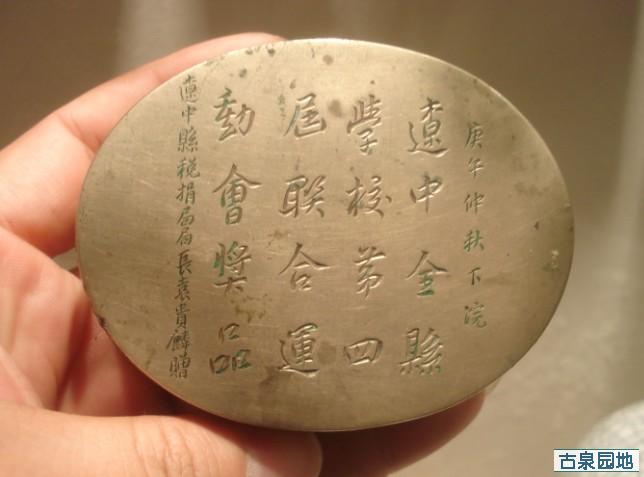 庚午仲秋下浣
遼中全縣
學校第四
屆聯合運
動會獎品
遼中縣税捐局局長袁貴麟贈
古泉园地